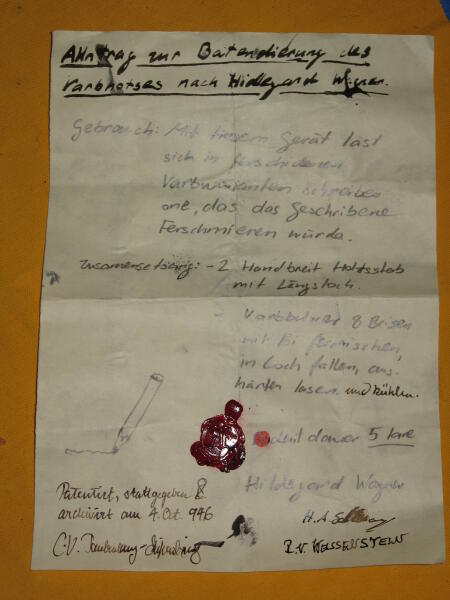 Ahntrag zur Batendierung des
Varbhotses nach Hildegard Wagner.
Gebrauch: Mit tiesem Gerät läst
sich in ferschidenen
Varbwarianten schreiben
one, das das geschribene
Ferschmieren würde.
zusamensetzung: - 2 Handbreit Holtsstab
mit Längsloch.
- Varbbulwer 8 Brisen
mit Ei fermischen,
in Loch fullen, aus
härten lasen. und kühlen.
dauer 5 Jare
Hildegard Wagner
Patentiert, stattgegeben &
archiviert am 4. Oct. 946
C.V.
H.A.
I.V. WEISSENSTEIN